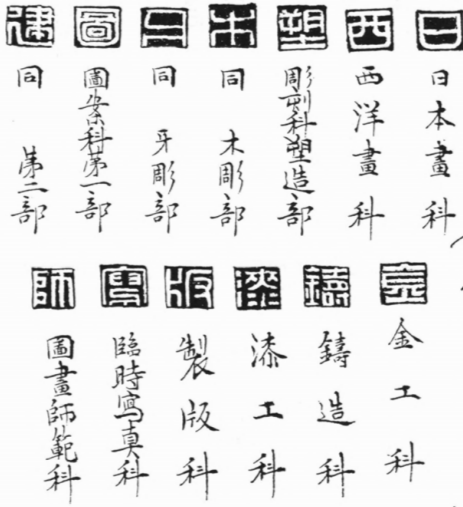 日
日本畫科
西
西洋畫科
塑
彫刻科塑造部
木
同 木彫部
牙
同 牙彫部
圖
圖案科第一部
建
同 第二部
金工科
鑄
鑄造科
漆
漆工科
版
製版科
寫
臨時寫真科
師
圖畫師範科